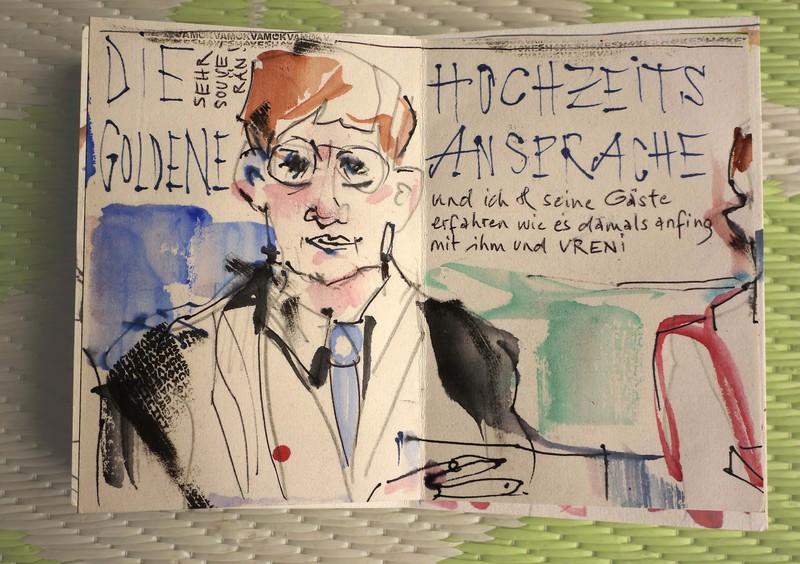 DIE
SEHR
SOUVE
RÄN
GOLDENE
HOCHZEITS
ANSPRACHE
und ich & seine Gäste
erfahren wie es damals anfing
mit ihm und VRENi